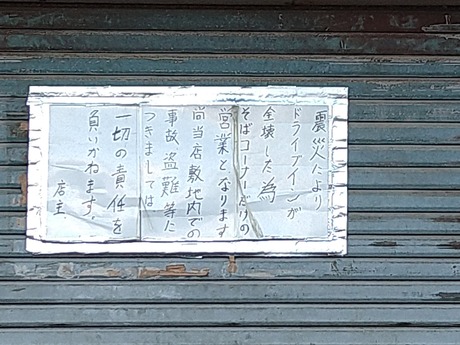 震災により
ドライブインが
全壊した為
そばコーナーだけの
営業となります
尚当店敷地内での
事故盗難等に
つきましては
一切の責任を
負いかねます。
店主